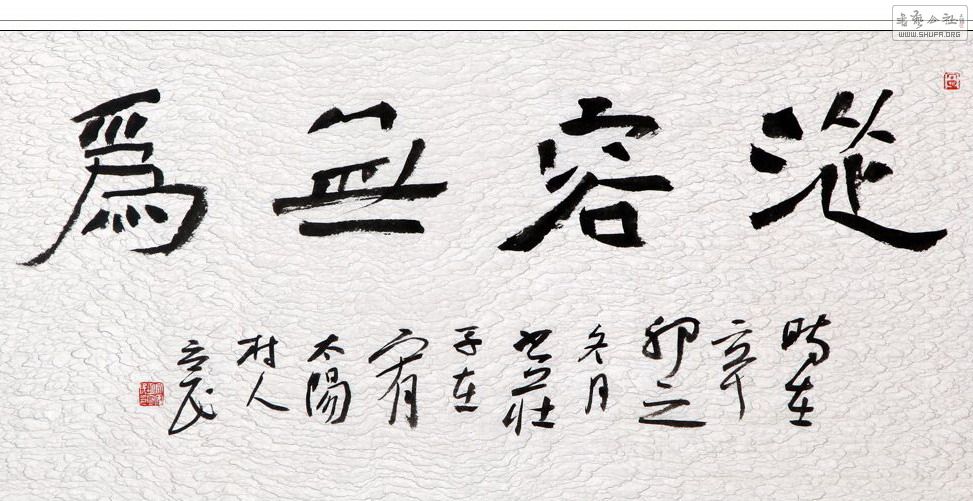 從容無為
時在
辛
卯之
冬月
書莊
子在
宥
太陽
村人
立民
書藝公社
WWW.SHUFA.ORG